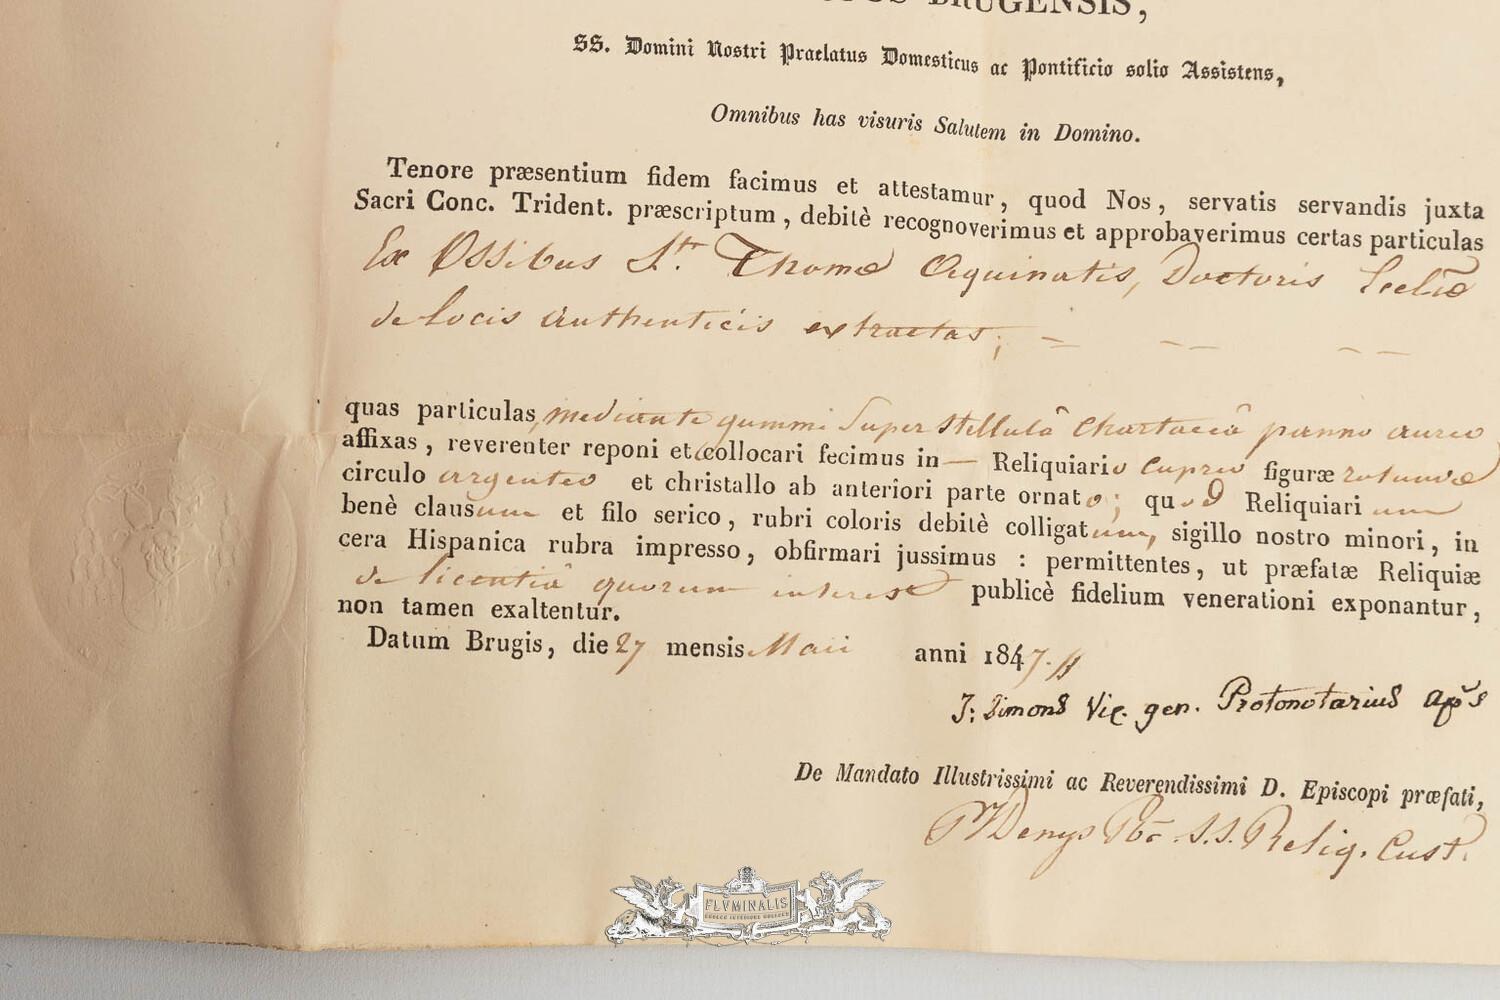 BRUGENSIS,
SS. Domini Nostri Praelatus Domesticus ac Pontificio solio Assistens,
Omnibus has visuris Salutem in Domino.
Tenore præsentium fidem facimus et attestamur, quod Nos, servatis servandis juxta
Sacri Conc. Trident. præscriptum, debitè recognoverimus et approbaverimus certas particulas
Ex Ossibus Sti. Thomæ Aquinatis, Doctoris Eccliæ
de Locis authenticis extractas; — — —
quas particulas, mediante gummi super stellulâ chartaceâ panno aureo
affixas, reverenter reponi et collocari fecimus in — Reliquiario cupreo figuræ rotundæ
circulo argenteo et christallo ab anteriori parte ornato; quod Reliquiarium
benè clausum et filo serico, rubri coloris debitè colligatum, sigillo nostro minori, in
cera Hispanica rubra impresso, obfirmari jussimus : permittentes, ut præfatæ Reliquiæ
de licentiâ quorum interest publicè fidelium venerationi exponantur,
non tamen exaltentur.
Datum Brugis, die 27 mensis Maii anni 1847.
J: Simons Vic. gen. Protonotarius apús
De Mandato Illustrissimi ac Reverendissimi D. Episcopi præfati,
Denys Pbr S.S. Reliq. Cust.
FLVMINALIS